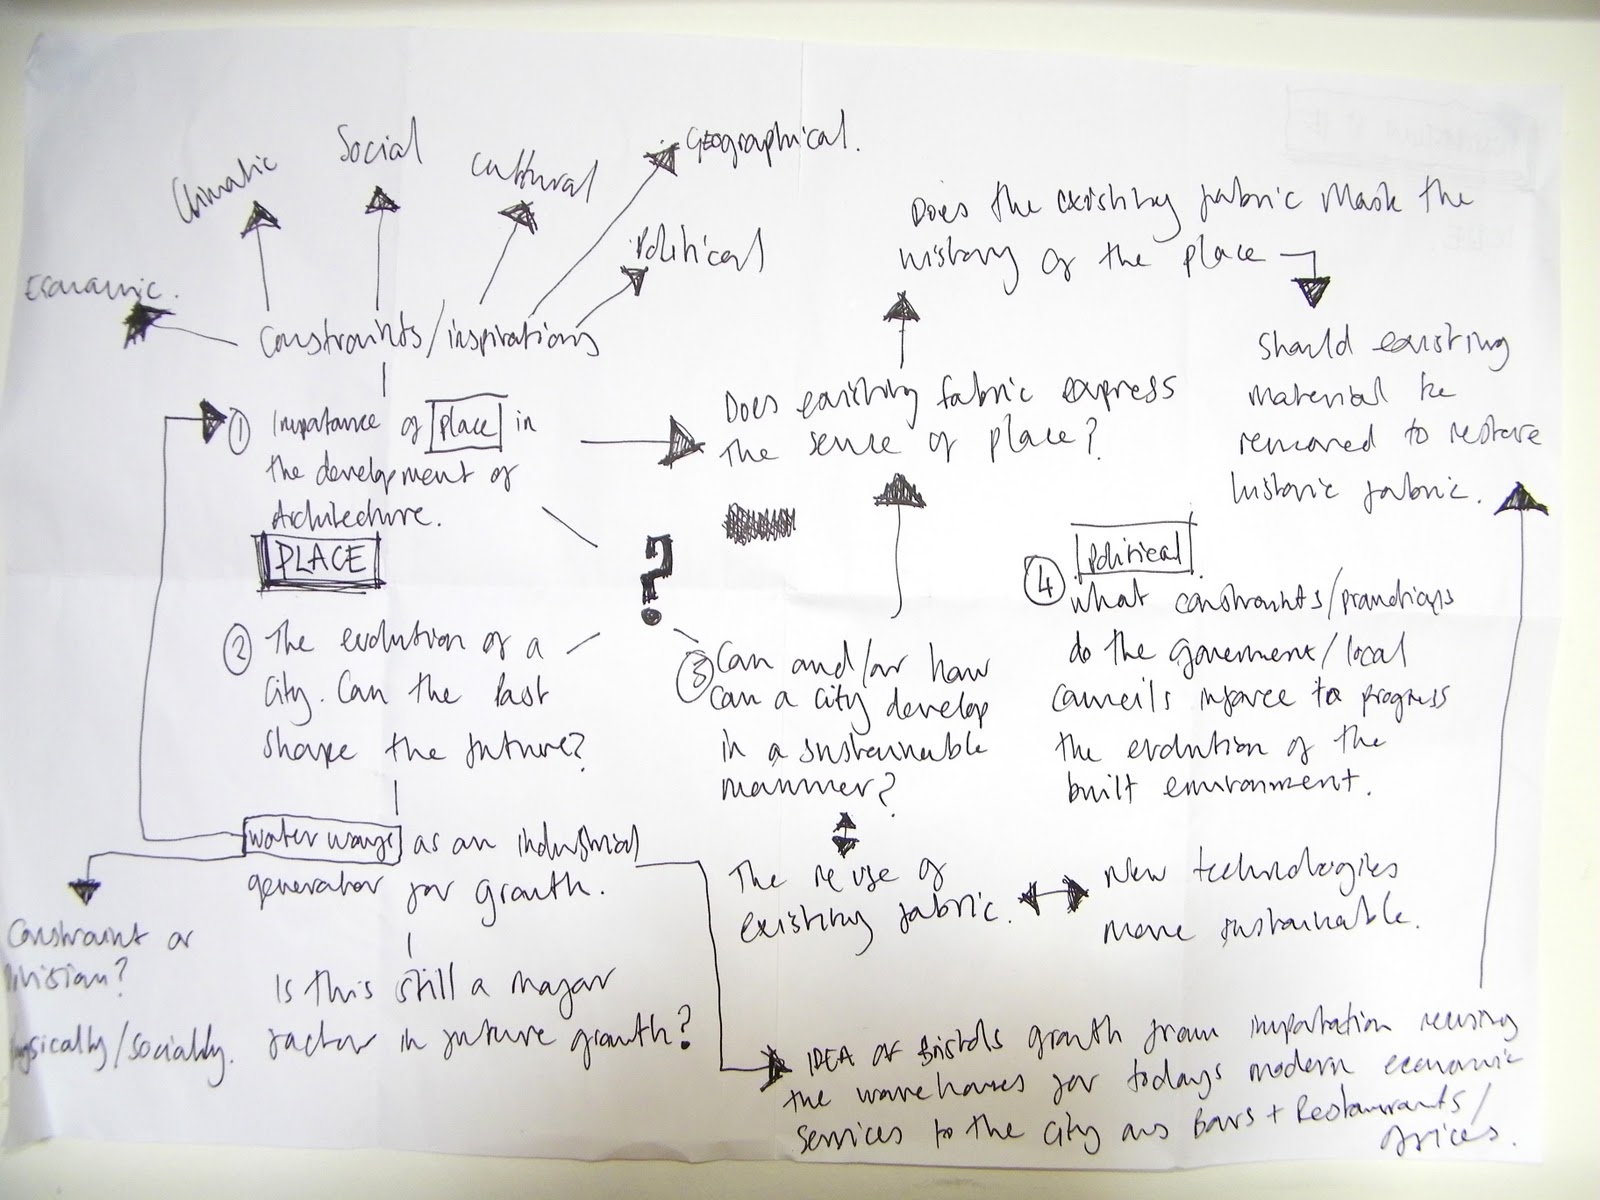 Climatic
Social
Cultural
Geographical.
Political
Economic.
Constraints/inspirations
① Importance of place in
the development of
Architecture.
PLACE
② The evolution of a
city. Can the past
shape the future?
waterways as an industrial
generator for growth.
Constraint or
Division?
Physically/socially.
Is this still a major
factor in future growth?
?
Does the existing fabric mask the
history of the place
should existing
material be
removed to restore
historic fabric.
Does existing fabric express
the sense of place?
③ Can and/or how
can a city develop
in a sustainable
manner?
The re use of
existing fabric.
New technologies
more sustainable.
Political
④ what constraints/
do the goverment/local
councils inforce to progress
the evolution of the
built environment.
IDEA of Bristols growth from importation reusing
the warehouses for todays modern economic
services to the city as Bars + Restaurants/
offices.